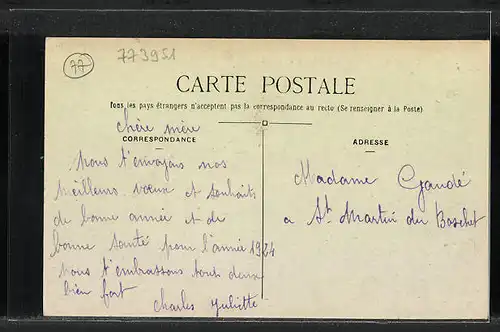 77
773951
CARTE POSTALE
Tous les pays étrangers n'acceptent pas la correspondance au recto (Se renseigner à la Poste)
CORRESPONDANCE
ADRESSE
chère mère
Nous t'envoyons nos
meilleurs vœux et souhaits
de bonne année et de
bonne santé pour l'année 1924
nous t'embrassons tous deux
bien fort
Charles Juliette
Madame Gaudé
a St Martin du Boschet